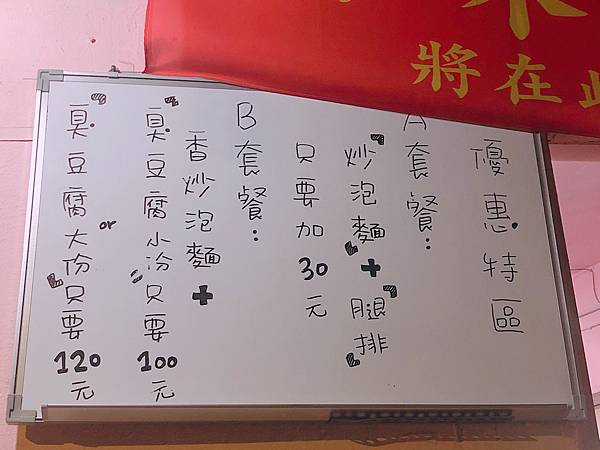 將在此
優惠特區
A套餐:
「炒泡麵」+「腿排」
只要加30元
B套餐:
香炒泡麵+
「臭豆腐小份」只要100元
or
「臭豆腐大份」只要120元